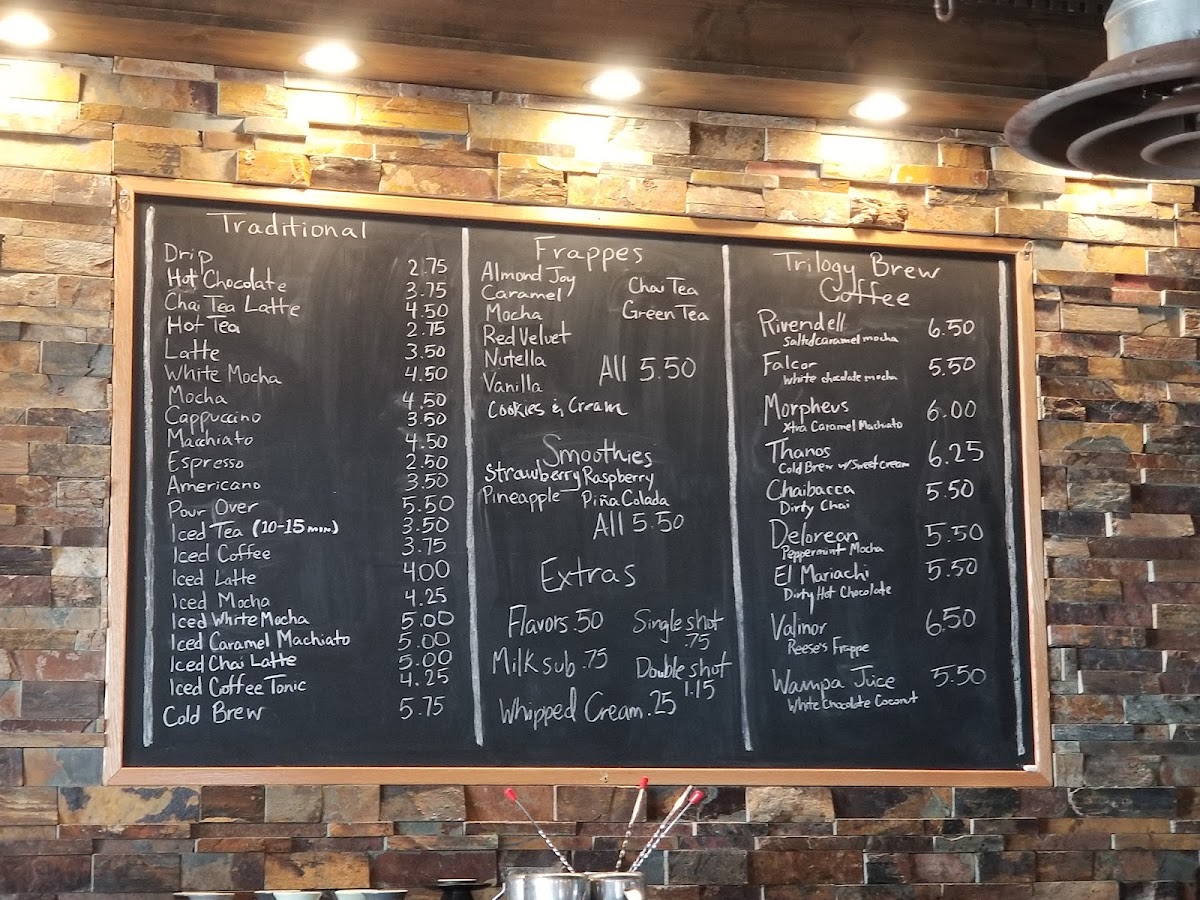 Traditional
Drip 2.75
Hot Chocolate 3.75
Chai Tea Latte 4.50
Hot Tea 2.75
Latte 3.50
White Mocha 4.50
Mocha 4.50
Cappuccino 3.50
Macchiato 4.50
Espresso 2.50
Americano 3.50
Pour Over 5.50
Iced Tea (10-15 min.) 3.50
Iced Coffee 3.75
Iced Latte 4.00
Iced Mocha 4.25
Iced White Mocha 5.00
Iced Caramel Machiato 5.00
Iced Chai Latte 5.00
Iced Coffee Tonic 4.25
Cold Brew 5.75
Frappes
Almond Joy
Caramel
Mocha
Red Velvet
Nutella
Vanilla
Cookies & Cream
Chai Tea
Green Tea
All 5.50
Smoothies
Strawberry Raspberry
Pineapple Piña Colada
All 5.50
Extras
Flavors .50
Single shot
.75
Milk sub .75
Double shot
1.15
Whipped Cream .25
Trilogy Brew
Coffee
Rivendell 6.50
Salted caramel mocha
Falcor 5.50
White chocolate mocha
Morpheus 6.00
Xtra Caramel Machiato
Thanos 6.25
Cold Brew w/Sweet Cream
Chaibacca 5.50
Dirty Chai
Delorean 5.50
Peppermint Mocha
El Mariachi 5.50
Dirty Hot Chocolate
Valinor 6.50
Reese's Frappe
Wampa Juce 5.50
White Chocolate Coconut